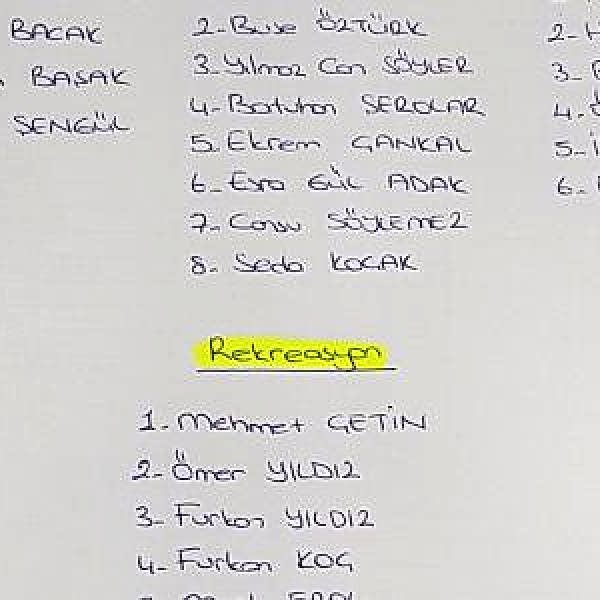 BACAK
BAŞAK
ŞENGÜL
2-Buse ÖZTÜRK
3-Yılmaz Can SÖYLER
4-Batuhan SERDLAR
5-Ekrem ÇANKAL
6-Esra GÜL ADAK
7-Cansu SÖYLEMEZ
8-Seda KOÇAK
2-
3-
4-
5-
6-
Rekreasyon
1-Mehmet ÇETİN
2-Ömer YILDIZ
3-Furkan YILDIZ
4-Furkan KOÇ